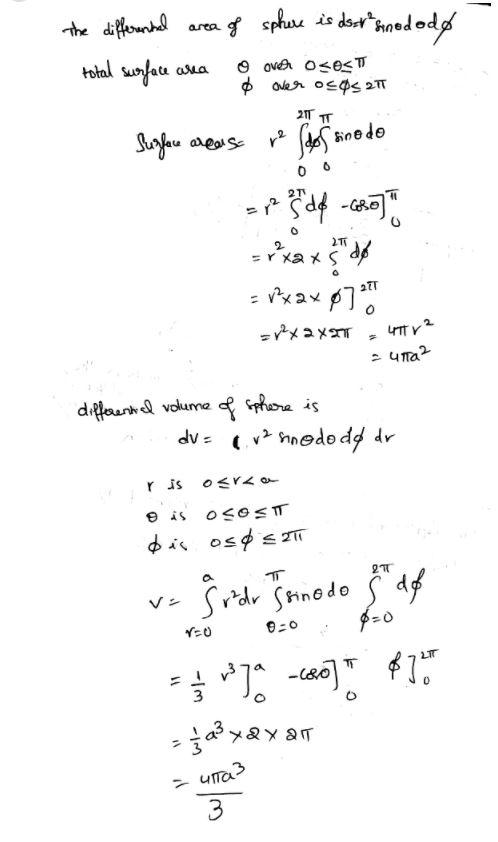 the differential area of sphere is ds=r² sinθdθdϕ
total surface area θ over 0≤θ≤π
ϕ over 0≤ϕ≤2π
Surface area S= r² ∫₀^2π dϕ ∫₀^π sinθdθ
= r² ∫₀^2π dϕ -cosθ]₀^π
= r² × 2 × ∫₀^2π dϕ
= r² × 2 × ϕ]₀^2π
= r² × 2 × 2π = 4πr²
= 4πa²
differential volume of sphere is
dV = ( r² sinθdθdϕ dr
r is 0≤r<a
θ is 0≤θ≤π
ϕ is 0≤ϕ≤2π
V = ∫_{r=0}^a r²dr ∫_{θ=0}^π sinθdθ ∫_{ϕ=0}^2π dϕ
= 1/3 r³]₀^a -cosθ]₀^π ϕ]₀^2π
= 1/3 a³ × 2 × 2π
= 4πa³/3